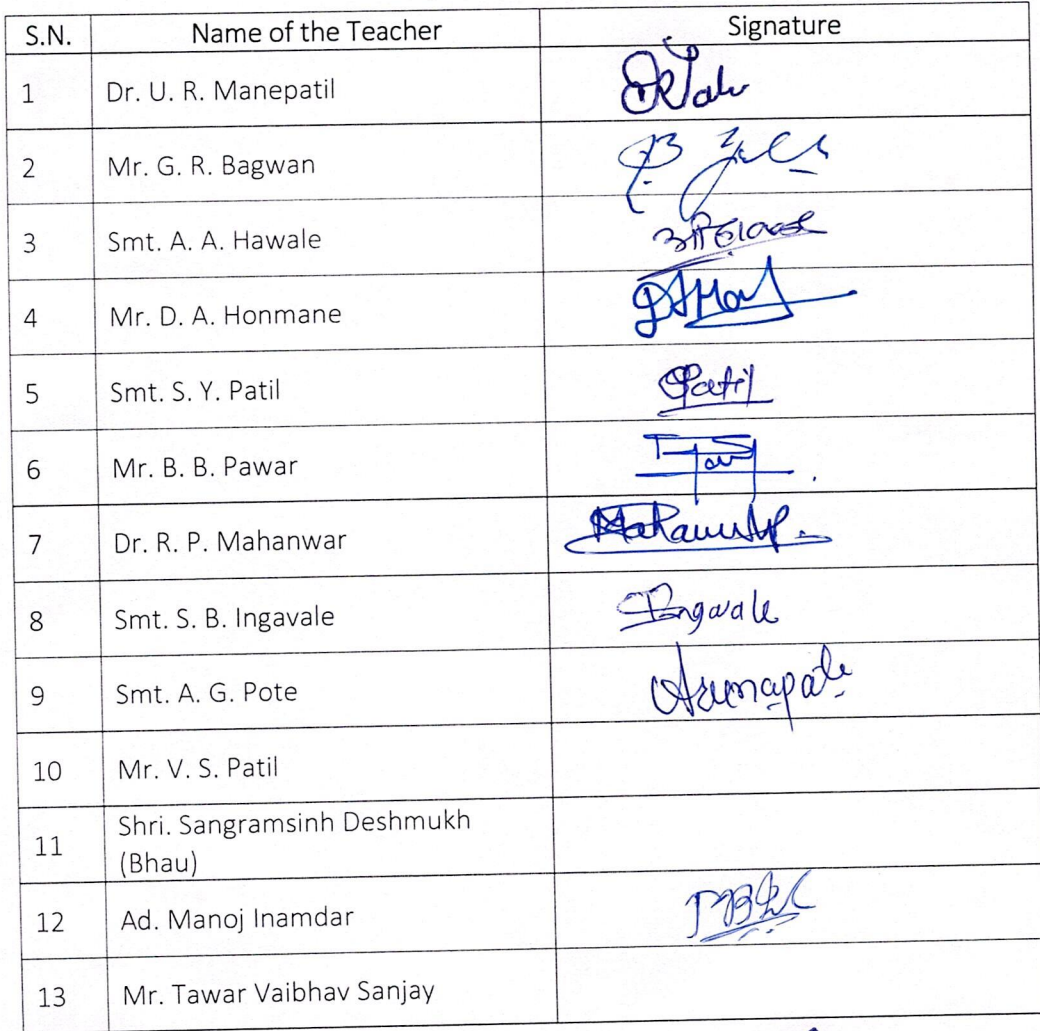 S.N. Name of the Teacher Signature
1 Dr. U. R. Manepatil
2 Mr. G. R. Bagwan
3 Smt. A. A. Hawale
4 Mr. D. A. Honmane
5 Smt. S. Y. Patil Patil
6 Mr. B. B. Pawar
7 Dr. R. P. Mahanwar
8 Smt. S. B. Ingavale Ingavale
9 Smt. A. G. Pote
10 Mr. V. S. Patil
11 Shri. Sangramsinh Deshmukh
(Bhau)
12 Ad. Manoj Inamdar
13 Mr. Tawar Vaibhav Sanjay